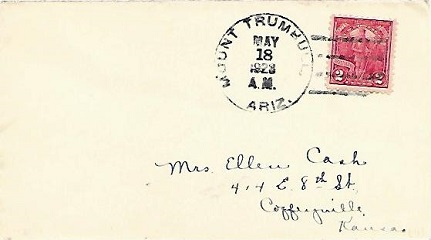 MOUNT TRUMBULL
MAY
18
A.M.
ARIZ.
2 2
Mrs. Ellen Cash
414 E. 8th St.
Coffeyville
Kansas